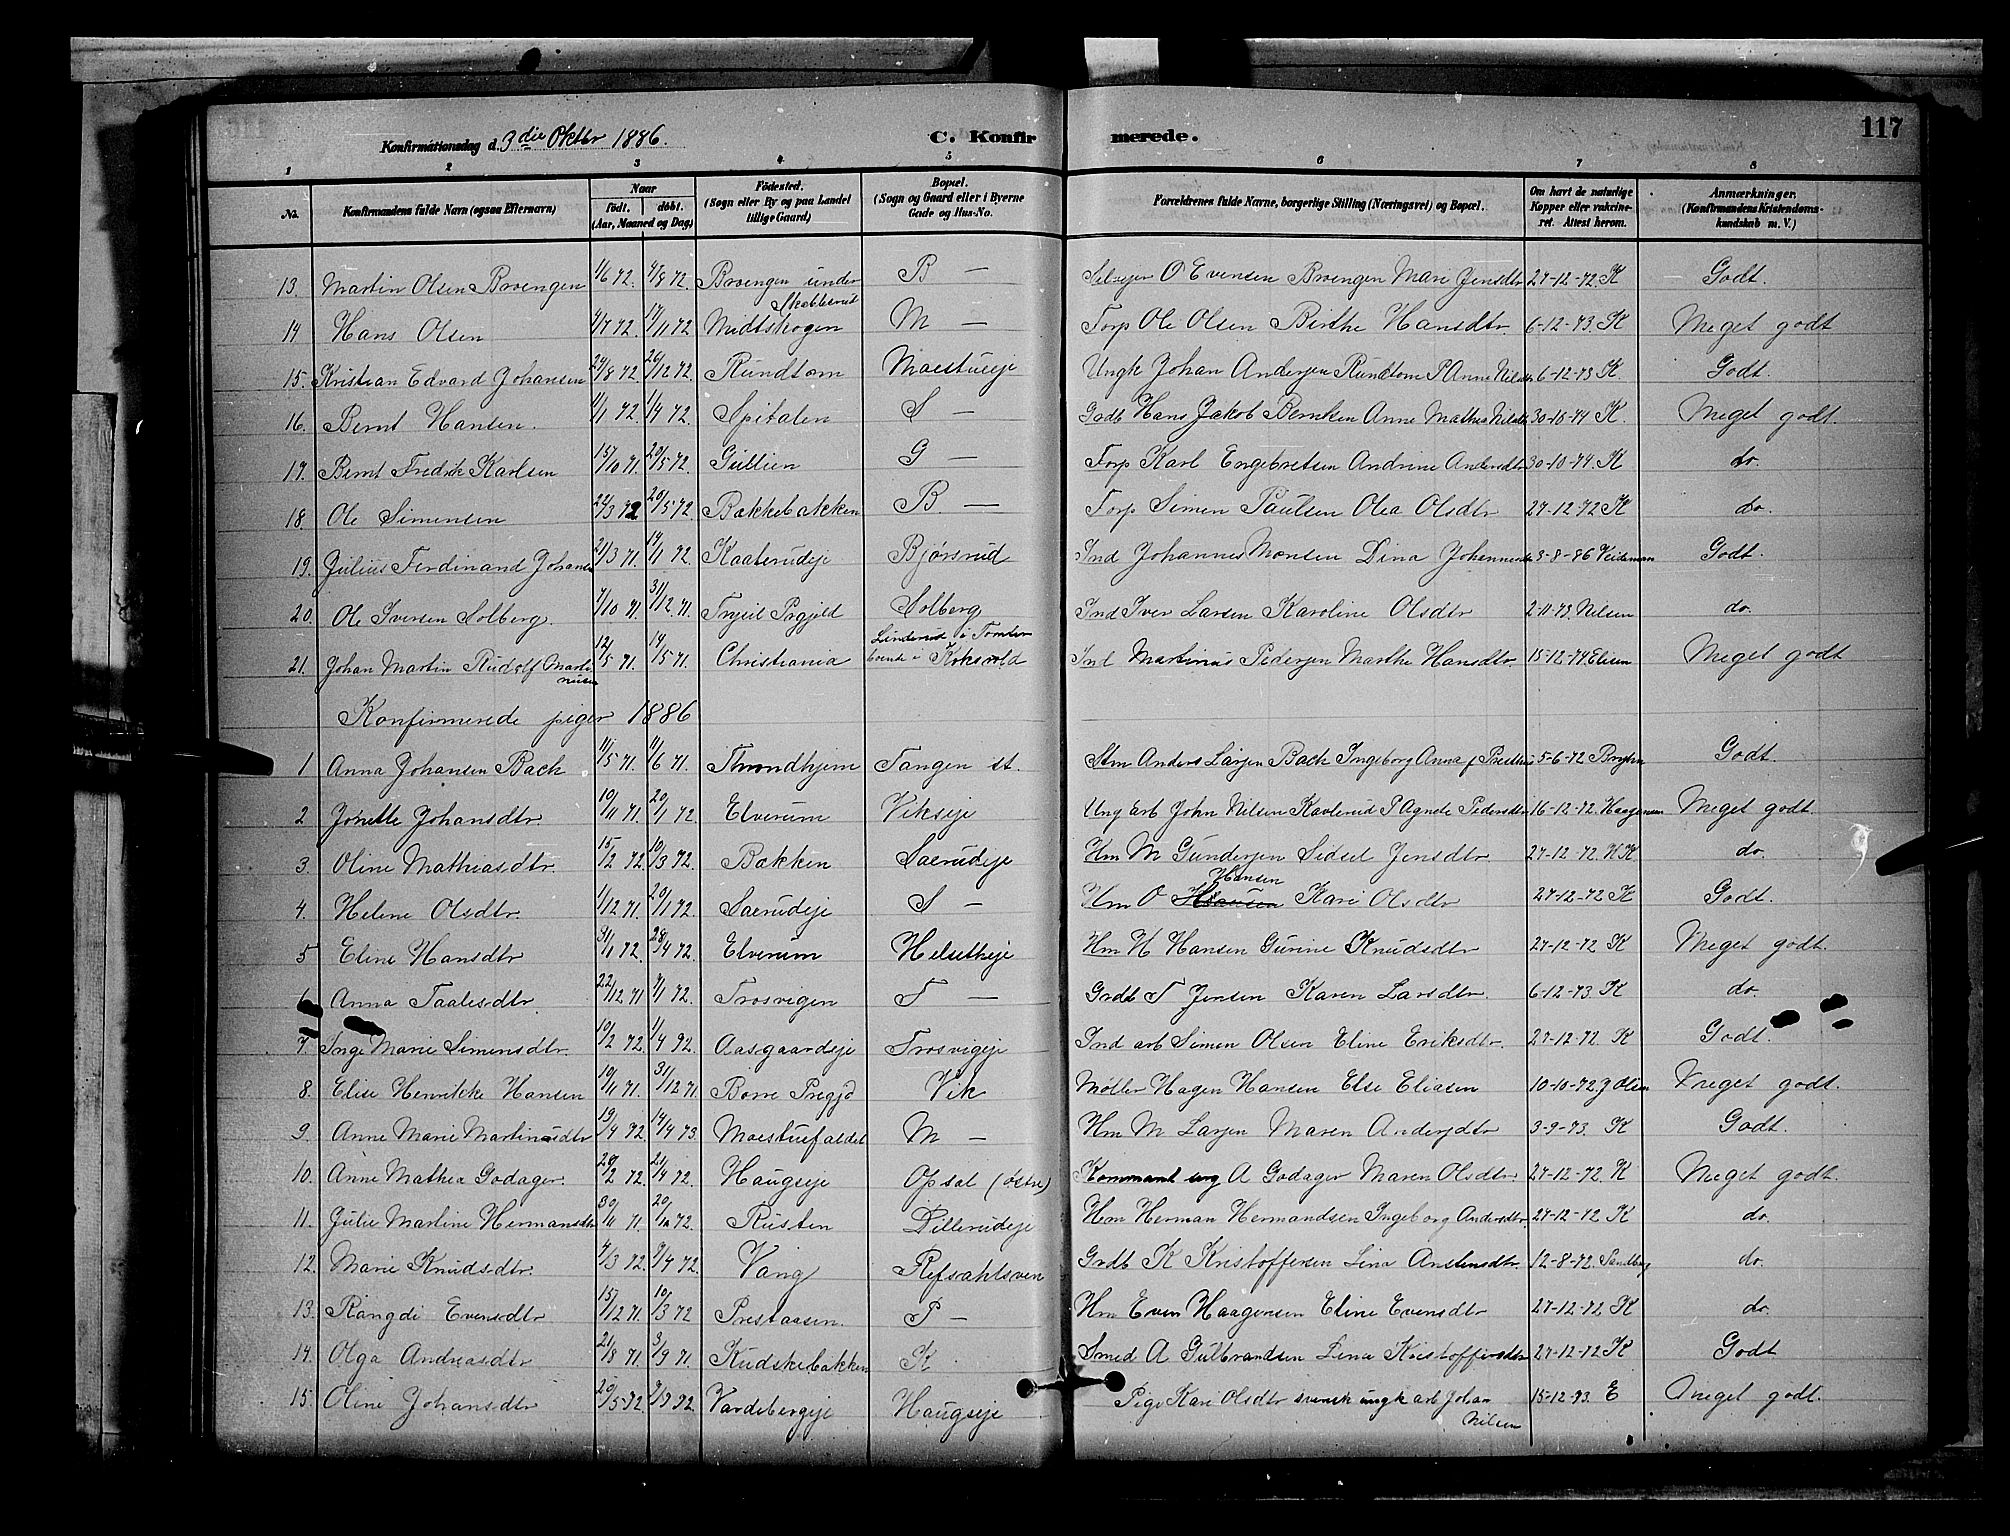 117
Konfirmationsdag d. 3die Oktbr 1886.
C. Konfirmerede.
1 2 3 4 5 6 7 8
No. Konfirmandens fulde Navn (ogsaa Efternavn) Naar født. døbt. (Aar, Maaned og Dag) Fødested. (Sogn eller By og paa Landet tillige Gaard) Bopæl. (Sogn og Gaard eller i Byerne Gade og Hus-No. Forældrenes fulde Navne, borgerlige Stilling (Næringsvei) og Bopæl. Om havt de naturlige Kopper eller vakcineret. Attest herom. Anmærkninger. (Konfirmandens Kristendomskundskab m. V.)
13. Martin Olsen Broengen 1/6 72. 4/8 72. Broengen under Skabberud B — Selvejer O Evensen Broengen Mari Jensdtr 27-12-72. K Godt.
14 Hans Olsen 4/7 72. 17/11 72 Midtskogen M — Torp Ole Olsen Birthe Hansdtr 6-12-73. K Meget godt
15. Kristian Edvard Johansen 24/8 72 26/12 72. Rundtom Moestueje Ungk Johan Andersen Rundtom P Anne Nilsdtr 6-12-73 K. Godt.
16. Bernt Hansen. 11/1 72. 1/4 72. Spitalen S — Gardb Hans Jakob Berntsen Anne Mathea Nilsdtr 30-10-74 K. Meget godt.
17. Bernt Fredrik Karlsen 15/10 71. 20/5 72. Gullien G — Torp Karl Engebretsen Andrine Andersdtr 30-10-74. K do.
18. Ole Simensen 22/3 72 20/5 72 Bakkebakken B. — Torp Simen Paulsen Olea Olsdtr 27-12-72 K do.
19. Julius Ferdinand Johansen 21/3 71. 14/1 72. Kaaterudeje Bjørsrud Ind Johannes Monsen Dina Johannesdtr 3-8-86 Veideman Godt.
20. Ole Iversen Solberg. 7/10 71. 31/12 71. Trysil Prgjeld Solberg Ind Iver Larsen Karoline Olsdtr 2-11-73. Nilsen do.
21. Johan Martin Rudolf Martinusen 12/5 71. 14/5 71. Christiania Linderud i Tomter Ind Martinus Pedersen Marthe Hansdtr 15-12-74. Elisen Meget godt
Konfirmerede piger 1886
1 Anna Johansen Bach 11/5 71. 11/6 71. Throndhjem Tangen st. Stm Anders Larsen Bach Ingeborg Anna f 5-6-72 Godt.
2 Jonette Johansdtr. 10/11 71. 20/1 72. Elverum Vikseje Ung arb John Nilsen Kaverud P Agnete Pedersdtr 16-12-72. Haagensen Meget godt.
3. Oline Mathiasdtr. 15/2 72. 10/3 72. Bakken Saerudeje Hm M Gundersen Sidsel Jensdtr 27-12-72. K do.
4. Helene Olsdtr. 1/12 71. 20/1 72. Saerudeje S — Hm O Hansen Kari Olsdtr 27-12-72 K Godt.
5 Eline Hansdtr 31/1 72. 28/4 72. Elverum Helsetheje Hm H Hansen Gurine Knudsdtr 27-12-72 K Meget godt.
6 Anna Taalesdtr. 22/12 71 7/1 72. Trosvigen T — Gardb T Jensen Karen Larsdtr. 6-12-73. K do.
7. Inge Marie Simensdtr. 10/2 72. 1/4 72. Aasgaardeje Trosvigeje Ind arb Simen Olsen Eline Eriksdtr. 27-12-72. K Godt.
8. Elise Henrikke Hansen 10/11 71. 31/12 71. Borre Pregjd Vik Møller Hagen Hansen Else Eliasen 10-10-72 J Olsen Meget godt.
9. Anne Marie Martinusdtr 19/4 72. 14/4 73. Moestuefaldet M — Hm M Larsen Maren Andersdtr 3-9-73. K Godt.
10. Anne Mathea Godager. 29/2 72. 21/4 72. Haugseje Opsal (østre) Kommant serg A Godager Maren Olsdtr. 27-12-72. K Meget godt.
11. Julie Martine Hermansdtr 30/11 71. 20/1 72. Rusten Dillerudeje Hm Herman Hermandsen Ingeborg Andersdtr. 27-12-72 K do.
12. Marie Knudsdtr. 4/3 72. 7/4 72. Vang Refsahlsven Grdb K Kristoffersen Lina Anstensdtr. 12-8-72. Sandberg do.
13. Rangdi Evensdtr 15/12 71. 10/3 72 Prestaasen. P — Hm Even Haagensen Eline Evensdtr 27-12-72 K do.
14. Olga Andreasdtr 21/8 71. 3/9 71. Kudskebakken K Smed A Gulbrandsen Lina Kristoffersdtr 27-12-72 K Godt
15. Oline Johansdtr 20/5-72 9/9 72. Vardebergeje Haugseje Pige Kari Olsdtr svensk ungk arb Johan Nilsen 15-12-73. E Meget godt.